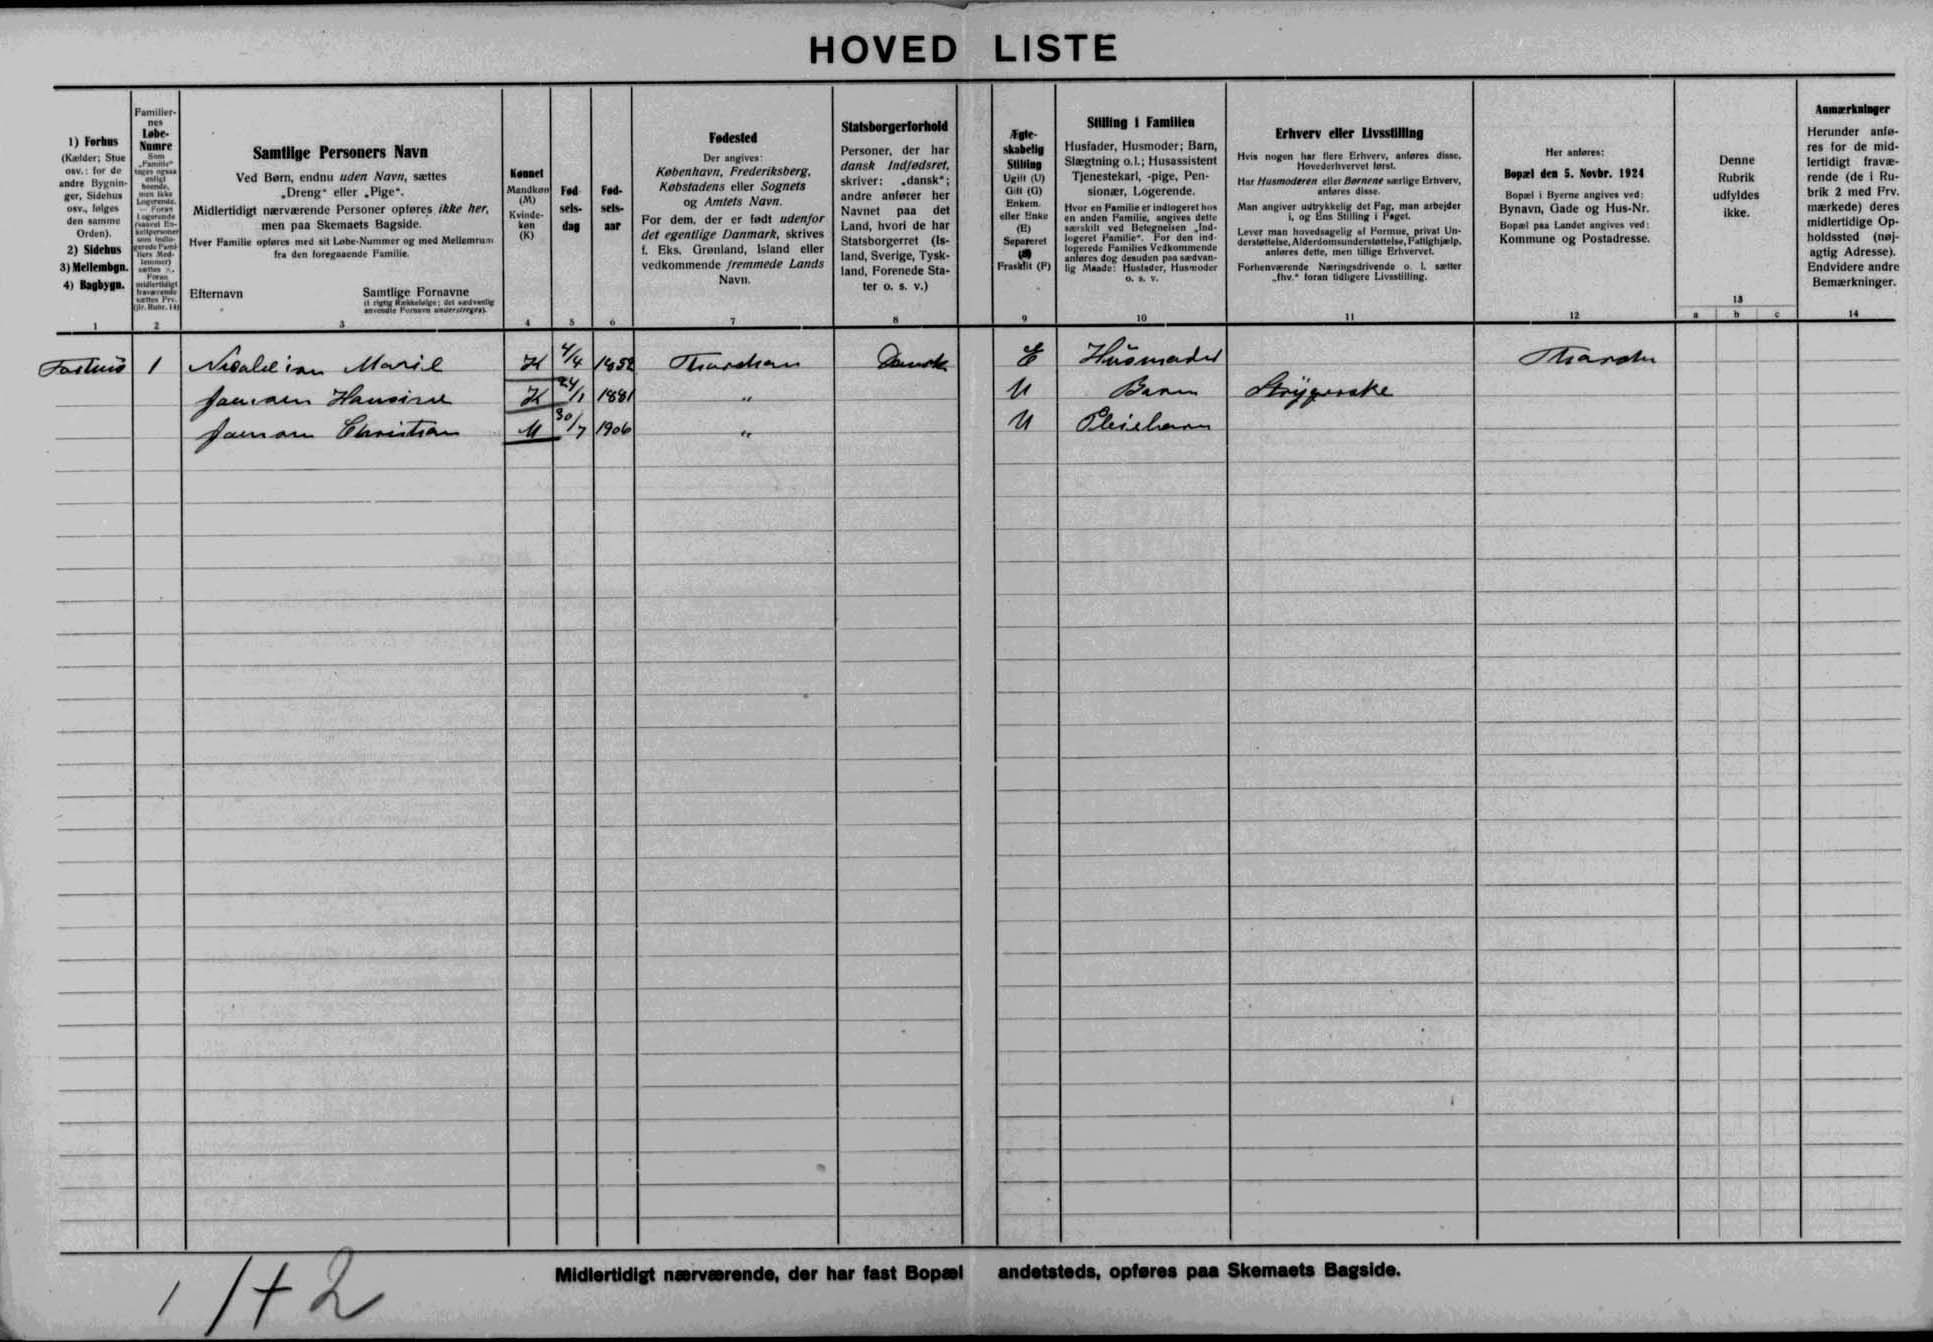 HOVED LISTE
1) Forhus
(Kælder; Stue
osv.: for de
andre Bygnin-
ger, Sidehus
osv., følges
den samme
Orden).
2) Sidehus
3) Mellembgn.
4) Bagbygn.
1
Familier-
nes
Løbe-
Numre
Som
„Familie"
tages ogsaa
enligt
boende,
men ikke
Logerende.
— Foran
Logerende
(saavel En-
keltpersoner
som indlo-
gerede Fami-
liers Med-
lemmer)
sættes ×.
Foran
midlertidigt
fraværende
sættes Frv.
(jfr. Rubr. 14)
2
Samtlige Personers Navn
Ved Børn, endnu uden Navn, sættes
„Dreng" eller „Pige".
Midlertidigt nærværende Personer opføres ikke her,
men paa Skemaets Bagside.
Hver Familie opføres med sit Løbe-Nummer og med Mellemrum
fra den foregaaende Familie.
Efternavn Samtlige Fornavne
(i rigtig Rækkefølge; det sædvanlig
anvendte Fornavn understreges).
3
Kønnet
Mandkøn
(M)
Kvinde-
køn
(K)
4
Fød-
sels-
dag
5
Fød-
sels-
aar
6
Fødested
Der angives:
København, Frederiksberg,
Købstadens eller Sognets
og Amtets Navn.
For dem, der er født udenfor
det egentlige Danmark, skrives
f. Eks. Grønland, Island eller
vedkommende fremmede Lands
Navn.
7
Statsborgerforhold
Personer, der har
dansk Indfødsret,
skriver: „dansk";
andre anfører her
Navnet paa det
Land, hvori de har
Statsborgerret (Is-
land, Sverige, Tysk-
land, Forenede Sta-
ter o. s. v.)
8
Ægte-
skabelig
Stilling
Ugift (U)
Gift (G)
Enkem.
eller Enke
(E)
Separeret
(S)
Fraskilt (F)
9
Stilling i Familien
Husfader, Husmoder; Barn,
Slægtning o.l.; Husassistent
Tjenestekarl, -pige, Pen-
sionær, Logerende.
Hvor en Familie er indlogeret hos
en anden Familie, angives dette
særskilt ved Betegnelsen „Ind-
logeret Familie". For den ind-
logerede Families Vedkommende
anføres dog desuden paa sædvan-
lig Maade: Husfader, Husmoder
o. s. v.
10
Erhverv eller Livsstilling
Hvis nogen har flere Erhverv, anføres disse,
Hovederhvervet først.
Har Husmoderen eller Børnene særlige Erhverv,
anføres disse.
Man angiver udtrykkelig det Fag, man arbejder
i, og Ens Stilling i Faget.
Lever man hovedsagelig af Formue, privat Un-
derstøttelse, Alderdomsunderstøttelse, Fattighjælp,
anføres dette, men tillige Erhvervet.
Forhenværende Næringsdrivende o. l. sætter
„fhv." foran tidligere Livsstilling.
11
Her anføres:
Bopæl den 5. Novbr. 1924
Bopæl i Byerne angives ved:
Bynavn, Gade og Hus-Nr.
Bopæl paa Landet angives ved:
Kommune og Postadresse.
12
Denne
Rubrik
udfyldes
ikke.
13
a b c
Anmærkninger
Herunder anfø-
res for de mid-
lertidigt fravæ-
rende (de i Ru-
brik 2 med Frv.
mærkede) deres
midlertidige Op-
holdssted (nøj-
agtig Adresse).
Endvidere andre
Bemærkninger.
14
Forhus 1 Marie K 4/4 1852 Dansk E Husmoder
Hansine K 24/1 1881 " U Barn Strygerske
Christian M 30/7 1906 " U Pleiebarn
Midlertidigt nærværende, der har fast Bopæl andetsteds, opføres paa Skemaets Bagside.
1 1+2